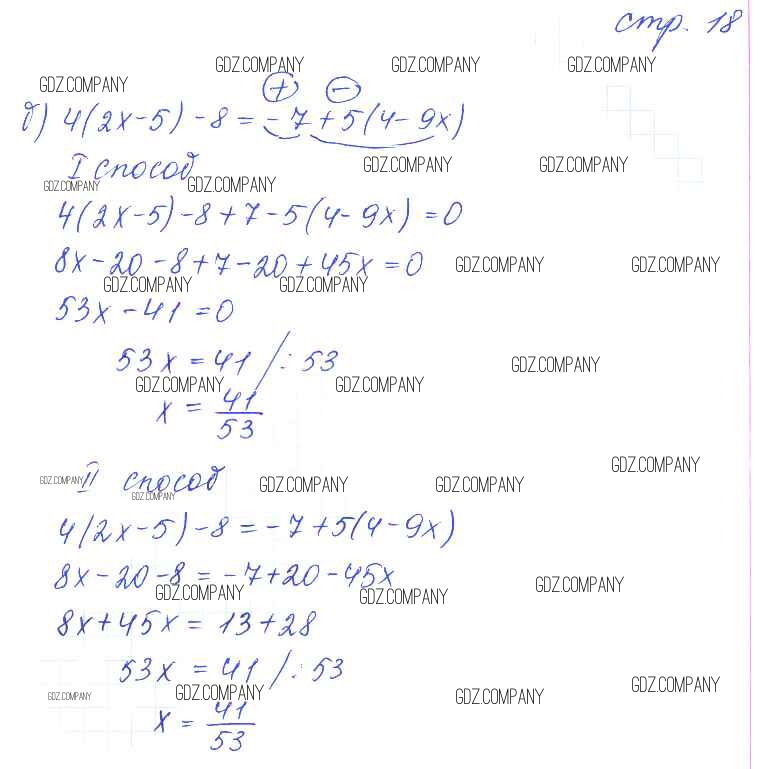 стр. 18
GDZ.COMPANY GDZ.COMPANY GDZ.COMPANY
GDZ.COMPANY
+ −
б) 4(2x-5)-8 = -7+5(4-9x)
I способ
GDZ.COMPANY GDZ.COMPANY
GDZ.COMPANY GDZ.COMPANY
4(2x-5)-8+7-5(4-9x)=0
8x-20-8+7-20+45x=0
GDZ.COMPANY GDZ.COMPANY
GDZ.COMPANY GDZ.COMPANY
53x-41=0
53x=41 /:53
GDZ.COMPANY
GDZ.COMPANY GDZ.COMPANY
x = 41/53
GDZ.COMPANY
II способ
GDZ.COMPANY GDZ.COMPANY GDZ.COMPANY
GDZ.COMPANY
4(2x-5)-8=-7+5(4-9x)
8x-20-8=-7+20-45x
GDZ.COMPANY GDZ.COMPANY GDZ.COMPANY
8x+45x=13+28
53x=41 /:53
GDZ.COMPANY GDZ.COMPANY GDZ.COMPANY GDZ.COMPANY
x = 41/53